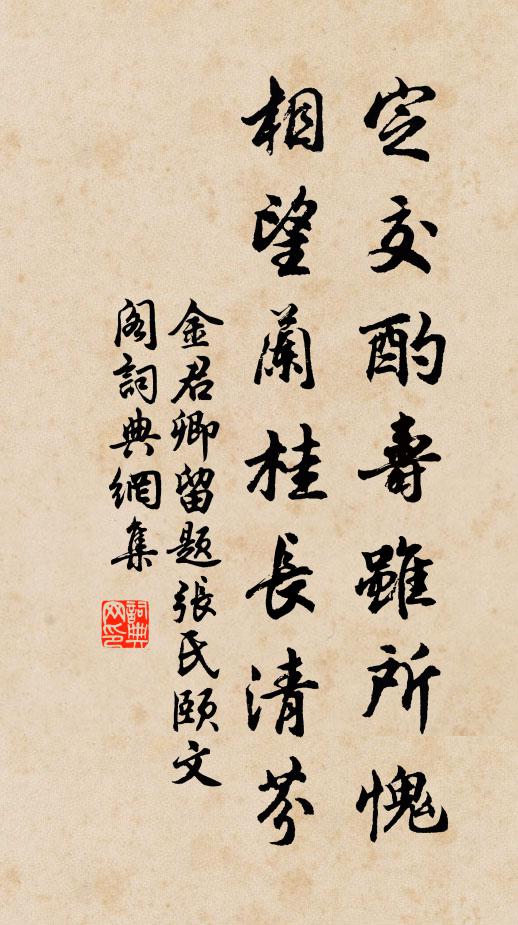 定交酌壽雖所愧
相望蘭桂長清芬
金君卿留題張氏頤文
閣詞典網集
詞典
网印